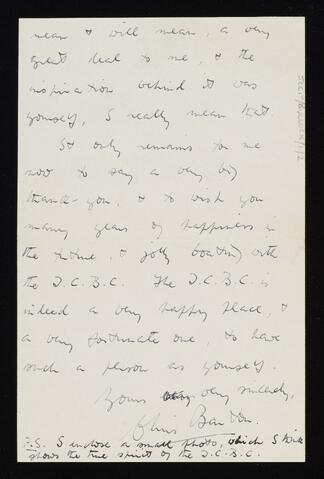 mean & will mean, a very
great deal to me, & the
inspiration behind it was
yourself, I really mean that.
It only remains to me
now to say a very big
thank-you, & to wish you
many years of happiness in
the future, & jolly boating with
the J.C.B.C. The J.C.B.C. is
indeed a very happy place, &
a very fortunate one, to have
such a person as yourself.
Yours very sincerely,
Chris Barton.
P.S. I enclose a small photo, which I think
shows the true spirit of the J.C.B.C.